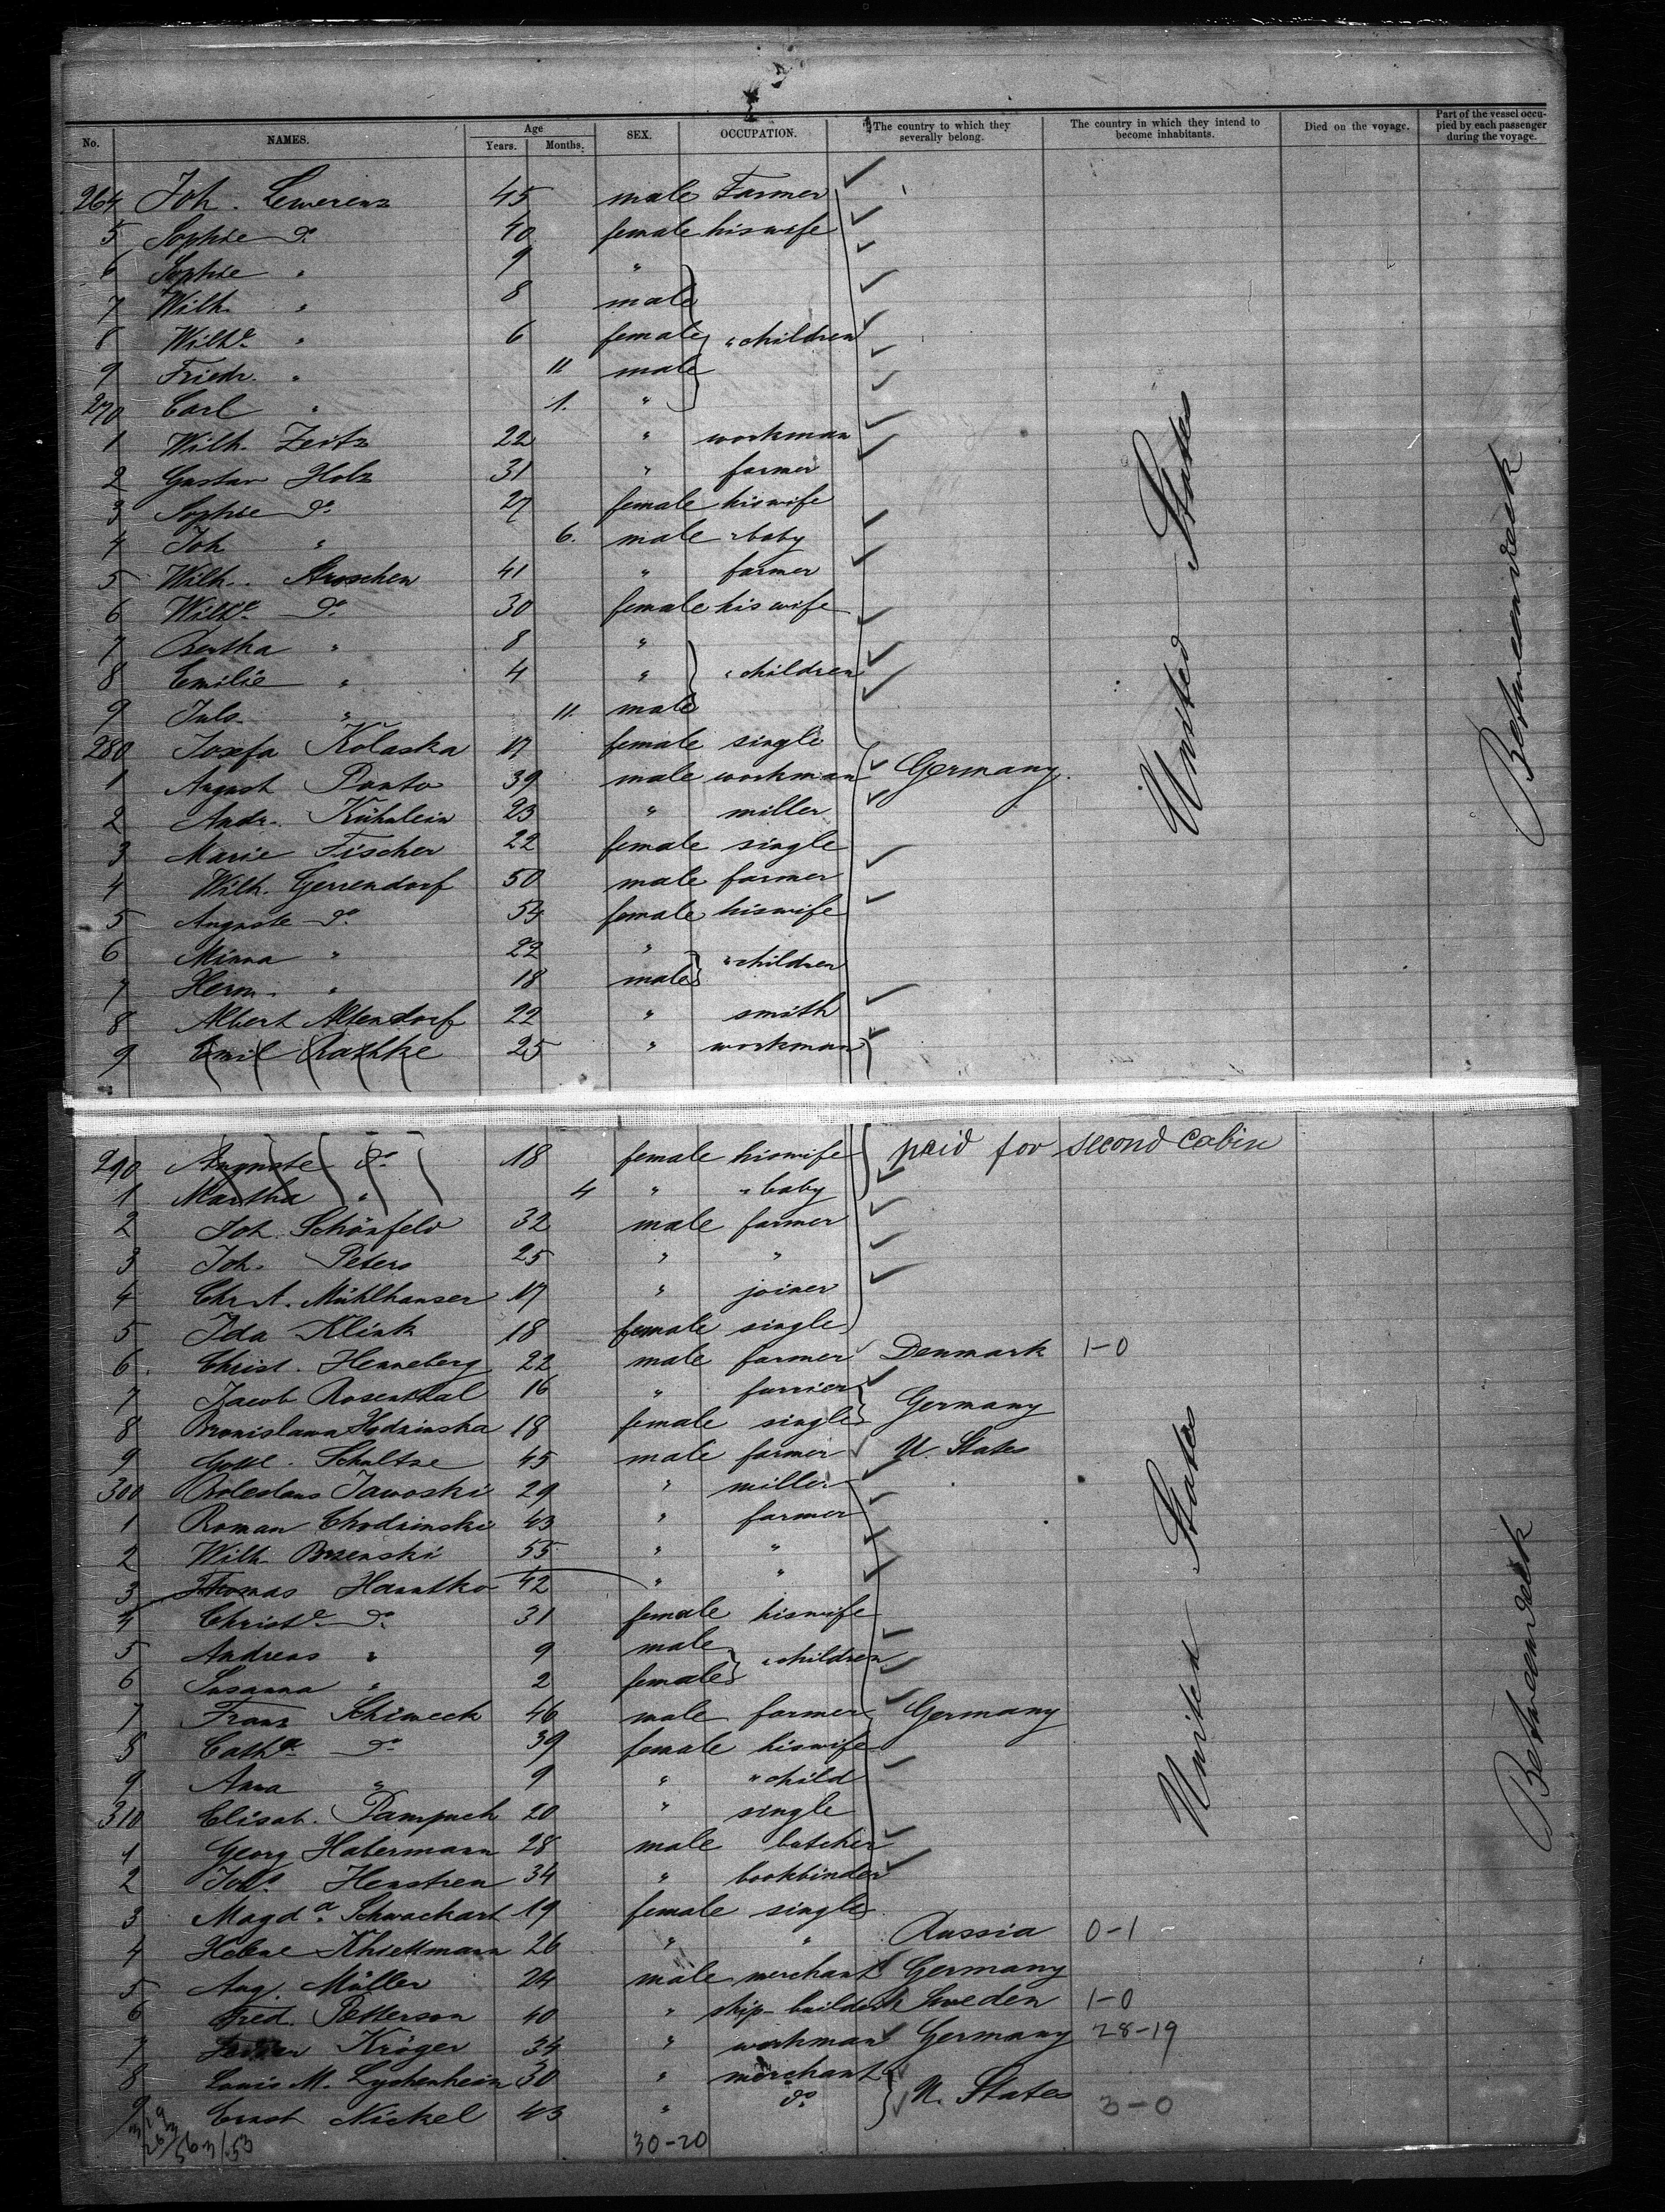 No. NAMES. Age Years. Months. SEX. OCCUPATION. The country to which they severally belong. The country in which they intend to become inhabitants. Died on the voyage. Part of the vessel occupied by each passenger during the voyage.
264 Joh. Lewerenz 45 male Farmer
5 Sophie do 40 female his wife
6 Sophie " 9 "
7 Wilh. " 8 male
8 Wilhe " 6 female " children
9 Friedr. " 11. male
270 Carl " 1. "
1 Wilh. Zeitz 22 " workman
2 Gustav Holz 31 " farmer
3 Sophie do 27 female his wife
4 Joh " 6. male " baby
5 Wilh. 41 " farmer
6 Wilhe do 30 female his wife
7 Bertha " 8 "
8 Emilie " 4 " " children
9 Juls. " 11. male
280 Josefa Kolaska 17 female single
1 August Panto 39 male workman Germany.
2 Andr. Kühnlein 23 " miller
3 Marie Fischer 22 female single
4 Wilh. Gerrendorf 50 male farmer
5 Auguste do 54 female his wife
6 Minna " 22 " " children
7 Herm. " 18 male
8 Albert Altendorf 22 " smith
9 Emil Rathke 25 " workman
United States
Betweendeck
290 Auguste do 18 female his wife paid for second Cabin
1 Martha " 4 " " baby
2 Joh. Schönfeld 32 male farmer
3 Joh. Peters 25 " "
4 Chr. A. Mühlhauser 17 " joiner
5 Ida Klink 18 female single
6. Christ. Henneberg 22 male farmer Denmark 1-0
7 Jacob Rosenthal 16 " furrier Germany
8 Bronislawa Hodzinska 18 female single
9 Gottl. Schultze 45 male farmer U. States
300 Boleslaus Jawoski 29 " miller
1 Roman Chodzinski 43 " farmer
2 Wilh. Brzenski 55 " "
3 Thomas Hanntko 42 " "
4 Christe do 31 female his wife
5 Andreas " 9 male " children
6 Susanna " 2 female
7 Franz Schiweck 46 male farmer Germany
8 Catha do 39 female his wife
9 Anna " 9 " " child
310 Elisab. Pampuch 20 " single
1 Georg Habermann 28 male butcher
2 Johs Henstren 34 " bookbinder
3 Magda Schwackart 19 female single
4 Helene Khiettmann 26 " " Russia 0-1
5 Aug. Müller 24 male merchant Germany
6 Fred. Petterson 40 " ship-builder Sweden 1-0
7 Kröger 34 " workman Germany 28-19
8 Louis M. Lychenheim 30 " merchant U. States
9 Ernst Nickel 43 " do 3-0
United States
Betweendeck
30-20